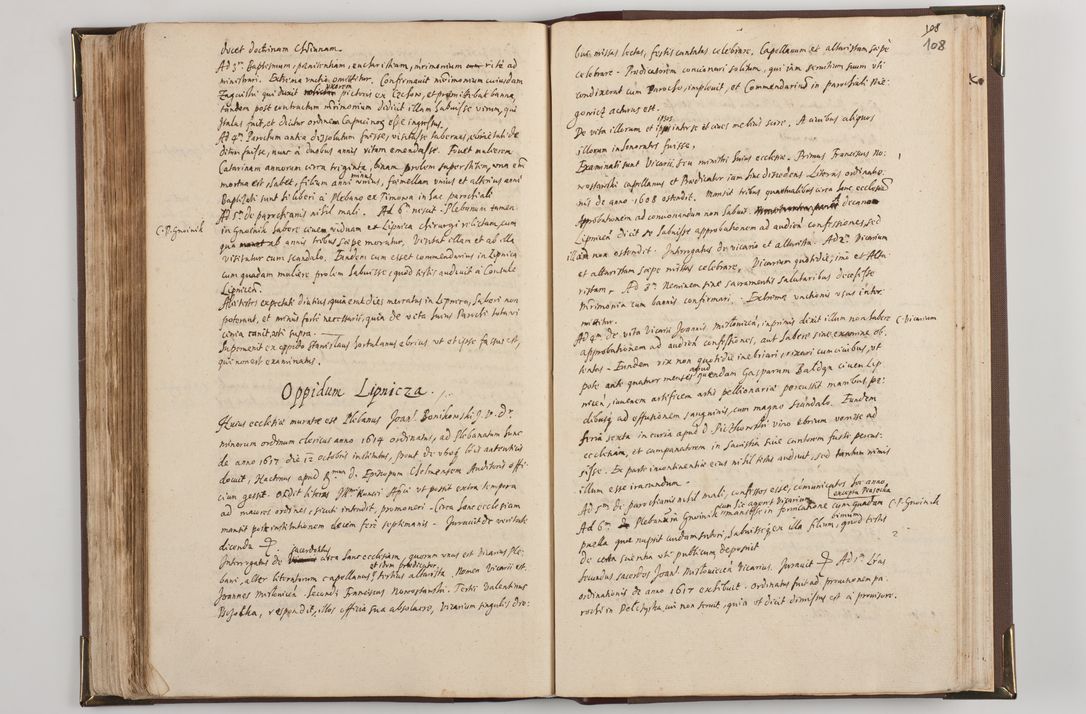 docet doctrinam Chr̄ianam.
Ad 3m Baptismum, pœnitentiam, eucharistiam, mr̄imonium rite ad
ministrari. Extrema unctio omittitur. Confirmavit mr̄imonium cuiusdam
qui duxit uxorem pictoris ex Lechow, et præmittebat banna,
tandem post contractum mr̄imonium didicit illam habuisse virum, qui
Italus fuit, et dicitur ordinem Capucinorum esse ingressus.
Ad 4m Parochum antea dissolutum fuisse, visitasse tabernas, ebrietati de
ditum fuisse, nunc a duobus annis vitam emendasse. Fovet mulierem
Catarinam annorum circa triginta, binam prolem superstitem, una em̄
mortua est habet, filium anni unius, fœmellam unius et alterius anni
Baptisati sunt hi liberi a Plebano ex Timowa in hac parochiali
Ad 5m de parochianis nihil mali. Ad 6m nescit. Plebanum tamen
C.P. Gnoinik
in Gnoinik habere ciuem viduam ex Lipnica chirurgi relictam, cum
qua ab annis tribus sæpe moratur, Visitat illam et ab illa
visitatur cum scandalo. Eundem cum esset commendarius in Lipnica
cum quadam muliere prolem habuisse, quod testis audiuit a Consule
Lipnicen.
Alii testes expectati diutius, quia eadie mercatus in Lipnica, haberi non
poterant, et minus forte necessarii, quia de vita huius Parochi tota vi
cinia canit, uti supra.
Supervenit ex oppido Stanislaus hortulanus ebrius, ut et ipse fassus est,
qui non est examinatus.
Oppidum Lipnicza.
Huius ecclesiæ muratæ est Plebanus Joan. Bonikowski J.V.Dr.
minorum ordinum clericus anno 1614 ordinatus, ad Plebanatum hunc
de anno 1617 die 12 octobris institutus, prout de utroque lris autenticis
docuit, Hactenus apud Rmum D. Episcopum Chelmensem Auditoris offi
cium gessit. Ondit literas Illmi Nuncii Aplici ut possit extra tempora
ad maiores ordines, sicuti intendit, promoveri. Circa hanc ecclesiam
mansit post institutionem decem fere septimanis. Juravit de veritate
dicenda ✝.
Interrogatus de sacerdotibus circa hanc ecclesiam, quorum unus est vicarius Ple:
bani, alter literatorum capellanus et idem prædicator, tertius altarista. Nomen Vicarii est
Joannes Mislonicius. Secundi Franciscus Nowostawski. Tertii Valentinus
respondit, illos officia sua absolvere, Vicarium singulis die:
108
108
bus missas lectas, festis cantatas celebrare, Capellanum et altaristam sæpe
celebrare. Prædicatorem concionari solitum, qui iam servitium suum uti
condixerat cum Parocho, implevit, et Commendarium in parochiali Nie
gowicz acturus est.
De vita illorum et ipsos inter se et ciues melius scire. A civibus aliquos
illorum inhonoratos fuisse.
Examinati sunt Vicarii, seu ministri huius ecclesiæ. Primus Franciscus No:
wostawski capellanus et Prædicator iam hinc discedens. Literas ordinatio
nis de anno 1608 ostendit. Mansit tribus quartualibus circa hanc ecclesiam
Approbationem ad concionandum non habuit. decanum
Lipnicen dicit se habuisse approbationem ad audien. confessiones, sed
illam non ostendit. Interrogatus de vicario et altarista. Ad 2m Vicarium
et altaristam sæpe missas celebrare, Vicarium quotidie, imo et Alta
ristam. Ad 3m Neminem sine sacramentis salutaribus decessisse
Mr̄imonia cum bannis confirmari. Extremæ unctionis usus inter
mittitur.
Ad 4m de vita Vicarii Joannis Mislonicii, inprimis dixit illum non habere
C. Vicarium
approbationem ad audien. confessiones, aut habere sine examine ob
tentas. Eundem vix non quotidie inebriari, rixari cum civibus, ut
pote ante quatuor menses apud quendam Gasparum Baldyn ciuem Lip
nicen, iuvenem artificem artis pellionariæ percussit manibus, pe:
dibusq. ad effusionem sanguinis, cum magno scandalo. Eundem
feria sexta in curia apud D. viro ebrium venisse ad
ecclesiam, et campanatorem in sacristia sive cantorem fuste percus:
sisse. Ex parte incontinentiæ eius nihil testis audivit, sed tantum nimis
illum esse iracundum.
Ad 5m de parochianis nihil mali, confessos esse, communicatos hoc anno,
excepta
Ad 6m Plebanum Gnoinik cum hic ageret vicarium mansisse in fornicatione cum quadam
C.P. Gnoinik
puella quæ nupsit cuidam sutori, habuisse ex illa filium bimum, quod testis
de certa scientia ut publicum deposuit
Secundus sacerdos Joan. Mislonicius Vicarius. Juravit ✝ Ad 1m Lras
ordinationis de anno 1617 exhibuit. Ordinatus fuit ad provisionem pa:
rochi in cui non servit, quia ut dicit dimissus est a provisore.